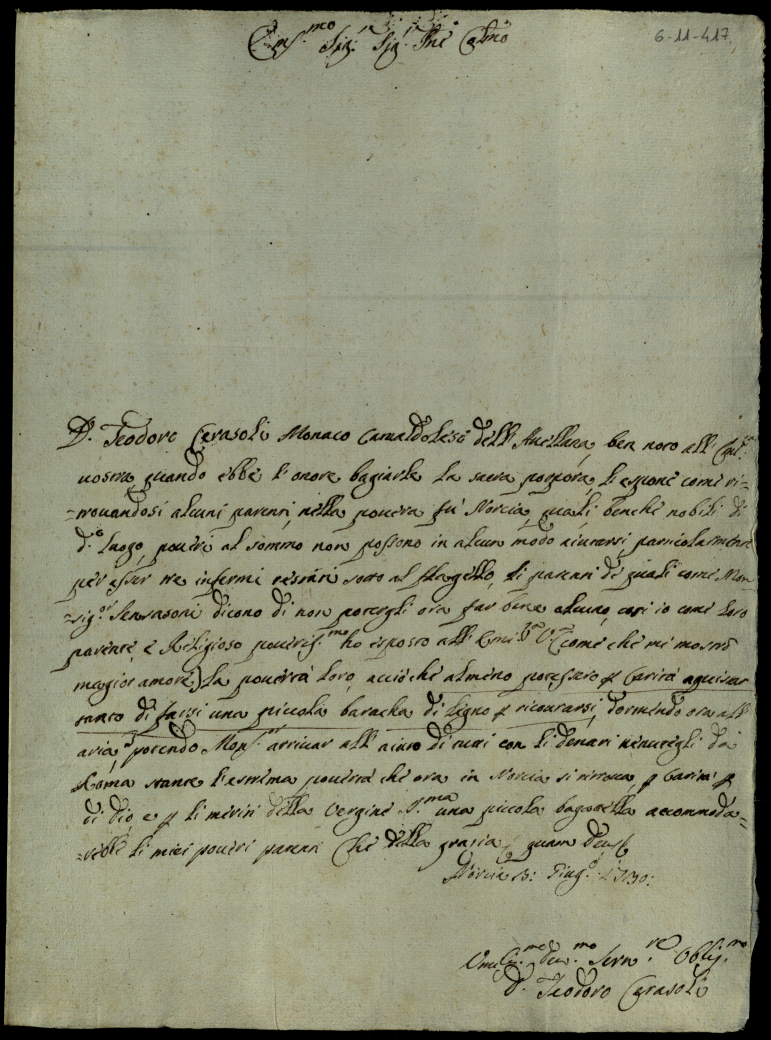 Em.mo Sig.r Sig.r Pne Colmo
6-11-417
D. Teodoro Cerasoli Monaco Camaldolese dell' Avellana, ben noto all'
vostra quando ebbe l'onore bagiarle la sacra porpora, li espone come ri-
-trovandosi alcuni parenti nella povera fù Norcia, quali benche nobili di
d.o luogo, poveri al sommo non possono in alcun modo aiutarsi, particolarmente
per esser tre infermi restati sotto al flagello, li parenti de quali come Mon-
-sig.r dicono di non potergli ora far bene alcuno, così io come loro
parente, e Religioso poveris.mo ho esposto all' come che mi mostrò
magior amore) la povertà loro, acciò che almeno potessero p carità aquistar
tanto di farsi una piccola baracha di legno p ricourarsi, dormendo ora all'
aria, potendo Mons.r arrivar all' aiuto di tutti con li denari venutegli da
Roma stante l'estrema povertà che ora in Norcia si ritrova, p carità p
di Dio e p li meriti della Vergine S.ma una piccola bagatella accommoda-
-rebbe li miei poveri parenti Che della grazia quam Deus
Norcia 13: Giug.o 1730:
Serv.re Oblig.mo
D. Teodoro Cerasoli